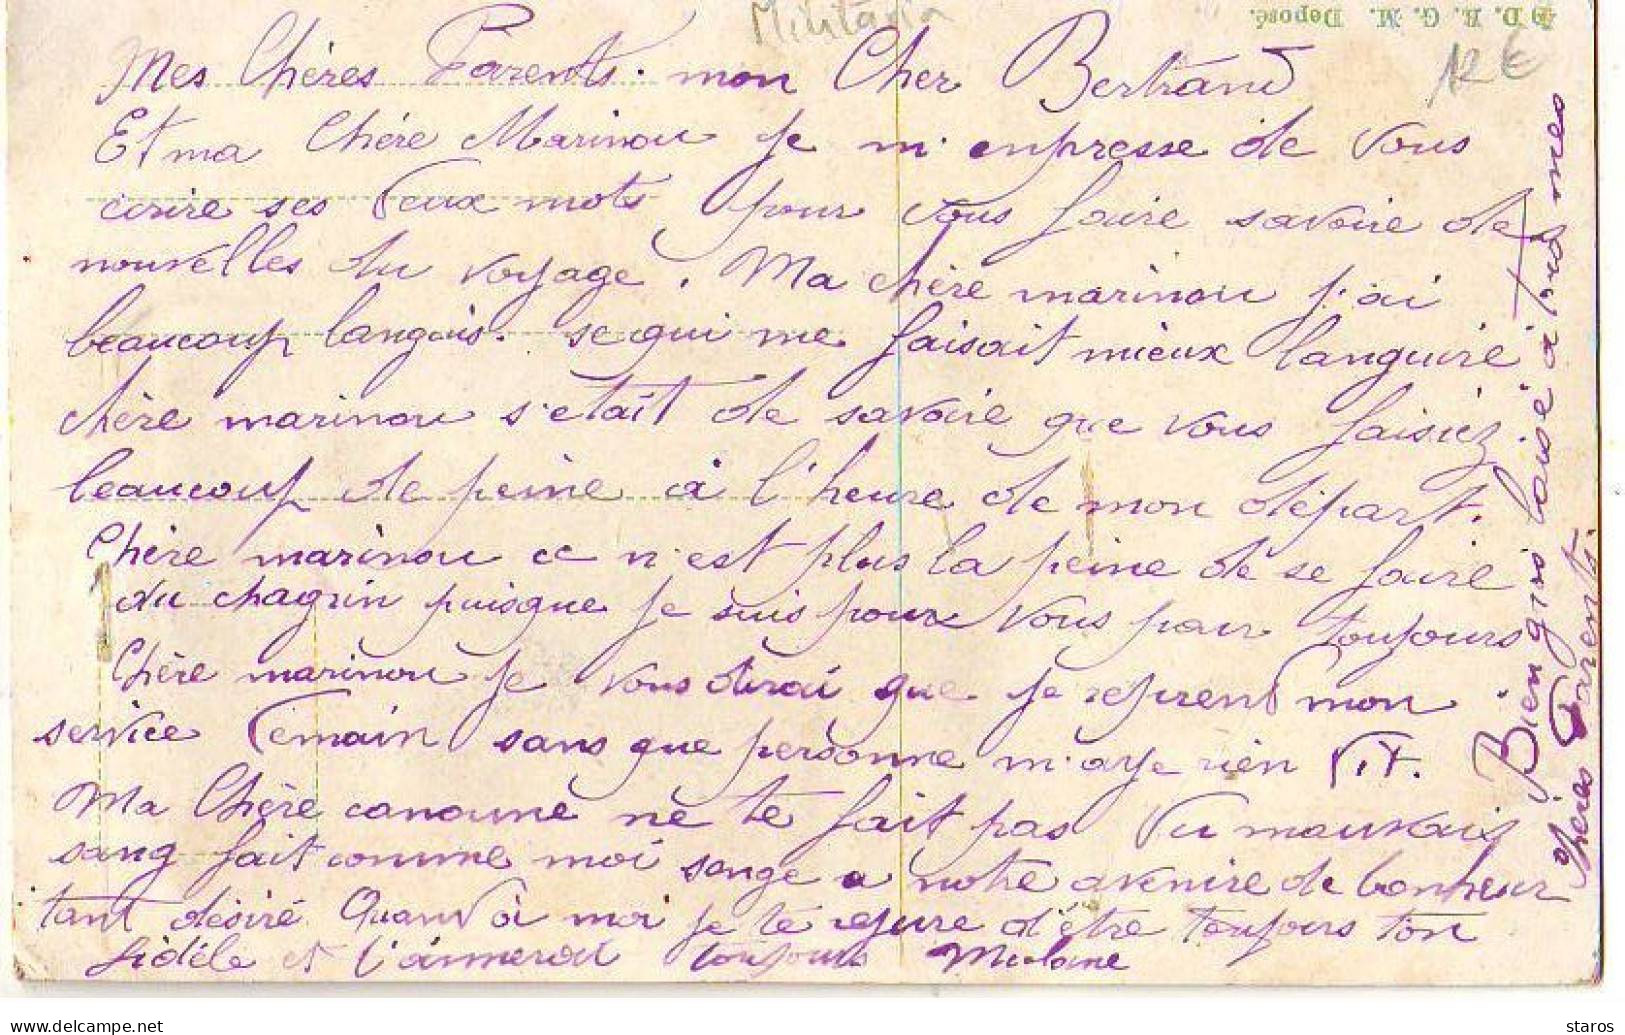 Militaria
D. R. G. M. Deposé.
12€
Mes Chères Parents. mon Cher Bertrand
Et ma Chére Marinou je m'enpresse de Vous
ecrire ses deux mots pour vous faire savoire de
nouvelles du voyage. Ma chère marinou j'ai
beaucoup languis. sequi me faisait mieux languire
chère marinou s'etait de savoire que vous faisiez
beaucoup de peine à l'heure de mon départ.
Chère marinou ce n'est plus la peine de se faire
du chagrin puisque je suis pour Vous pour toujours
Chère marinou je vous dirai que je reprend mon
service demain sans que personne m'aye rien dit.
Ma Chère canoune ne te fait pas du mauvaiz
sang fait comme moi songe a notre avenire de bonheur
tant désiré Quand à moi je te jure d'être toujours ton
fidéle et t'aimerai toujours
Bien gros baisé à tous mes
chères Parents.